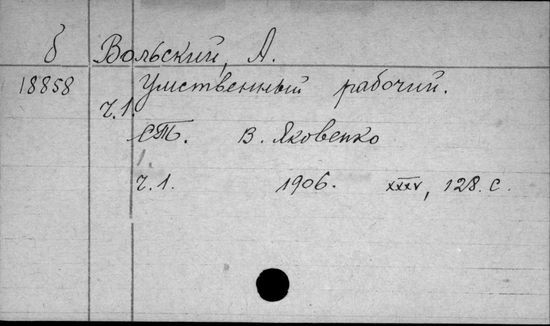 б Вольский, А.
18858 Умственный рабочий.
ч.1.
СПб. В. Яковенко
1.
ч.1. 1906. XXXV, 128. с.